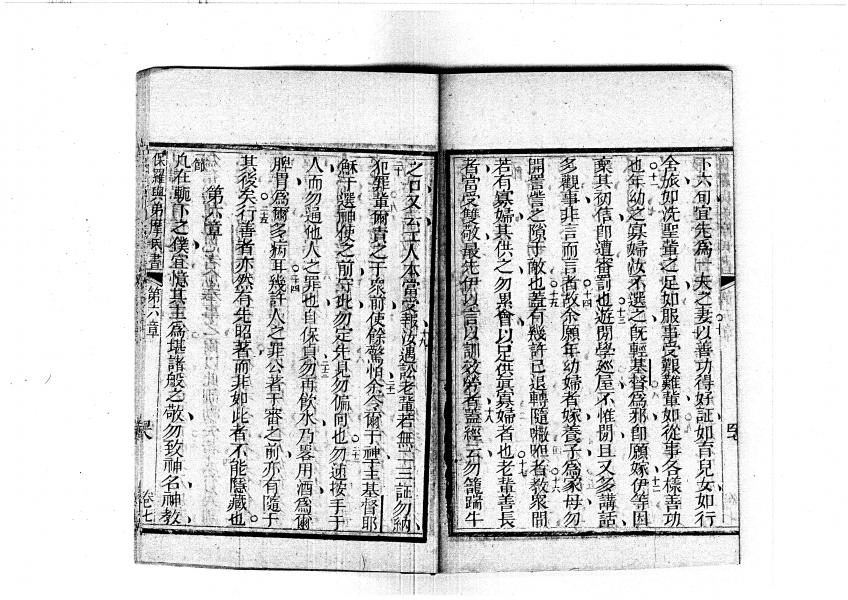 下六旬宜先為一夫之妻以善功得好証如育兒女如行
舍旅如洗聖輩之足如服事受艱難輩如從事各樣善功
也年幼之寡婦汝不選之旣輕基督為邪卽願嫁伊等因
棄其初信卽遭審罰也遊閒學廵屋不惟閒且又多講話
多觀事非言而言者故余願年幼婦者嫁養子為家母勿
開詈詈之隙于敵也蓋有幾許已退轉隨嘥呾者教衆間
若有寡婦其供之勿累會以足供眞寡婦者也老輩善長
者當受雙敬最先伊以言以訓效勞者蓋經云勿籠踹牛
之口又云工人本當受報汝遇訟老輩若無二三証勿納
犯罪輩爾責之于衆前使餘驚惧余令爾于神主基督耶
穌于選神使之前守此勿定先見勿偏向也勿速按手于
人而勿通他人之罪也自保貞勿再飲水乃畧用酒為爾
脾胃為爾多病耳幾許人之罪公著于審之前亦有隨于
其後矣行善者亦然有先昭著而非如此者不能隱藏也
第六章
節
凢在軛下之僕宜憶其主為堪諸般之敬勿致神名神教
保羅與弟摩氏書
第六章
卷七